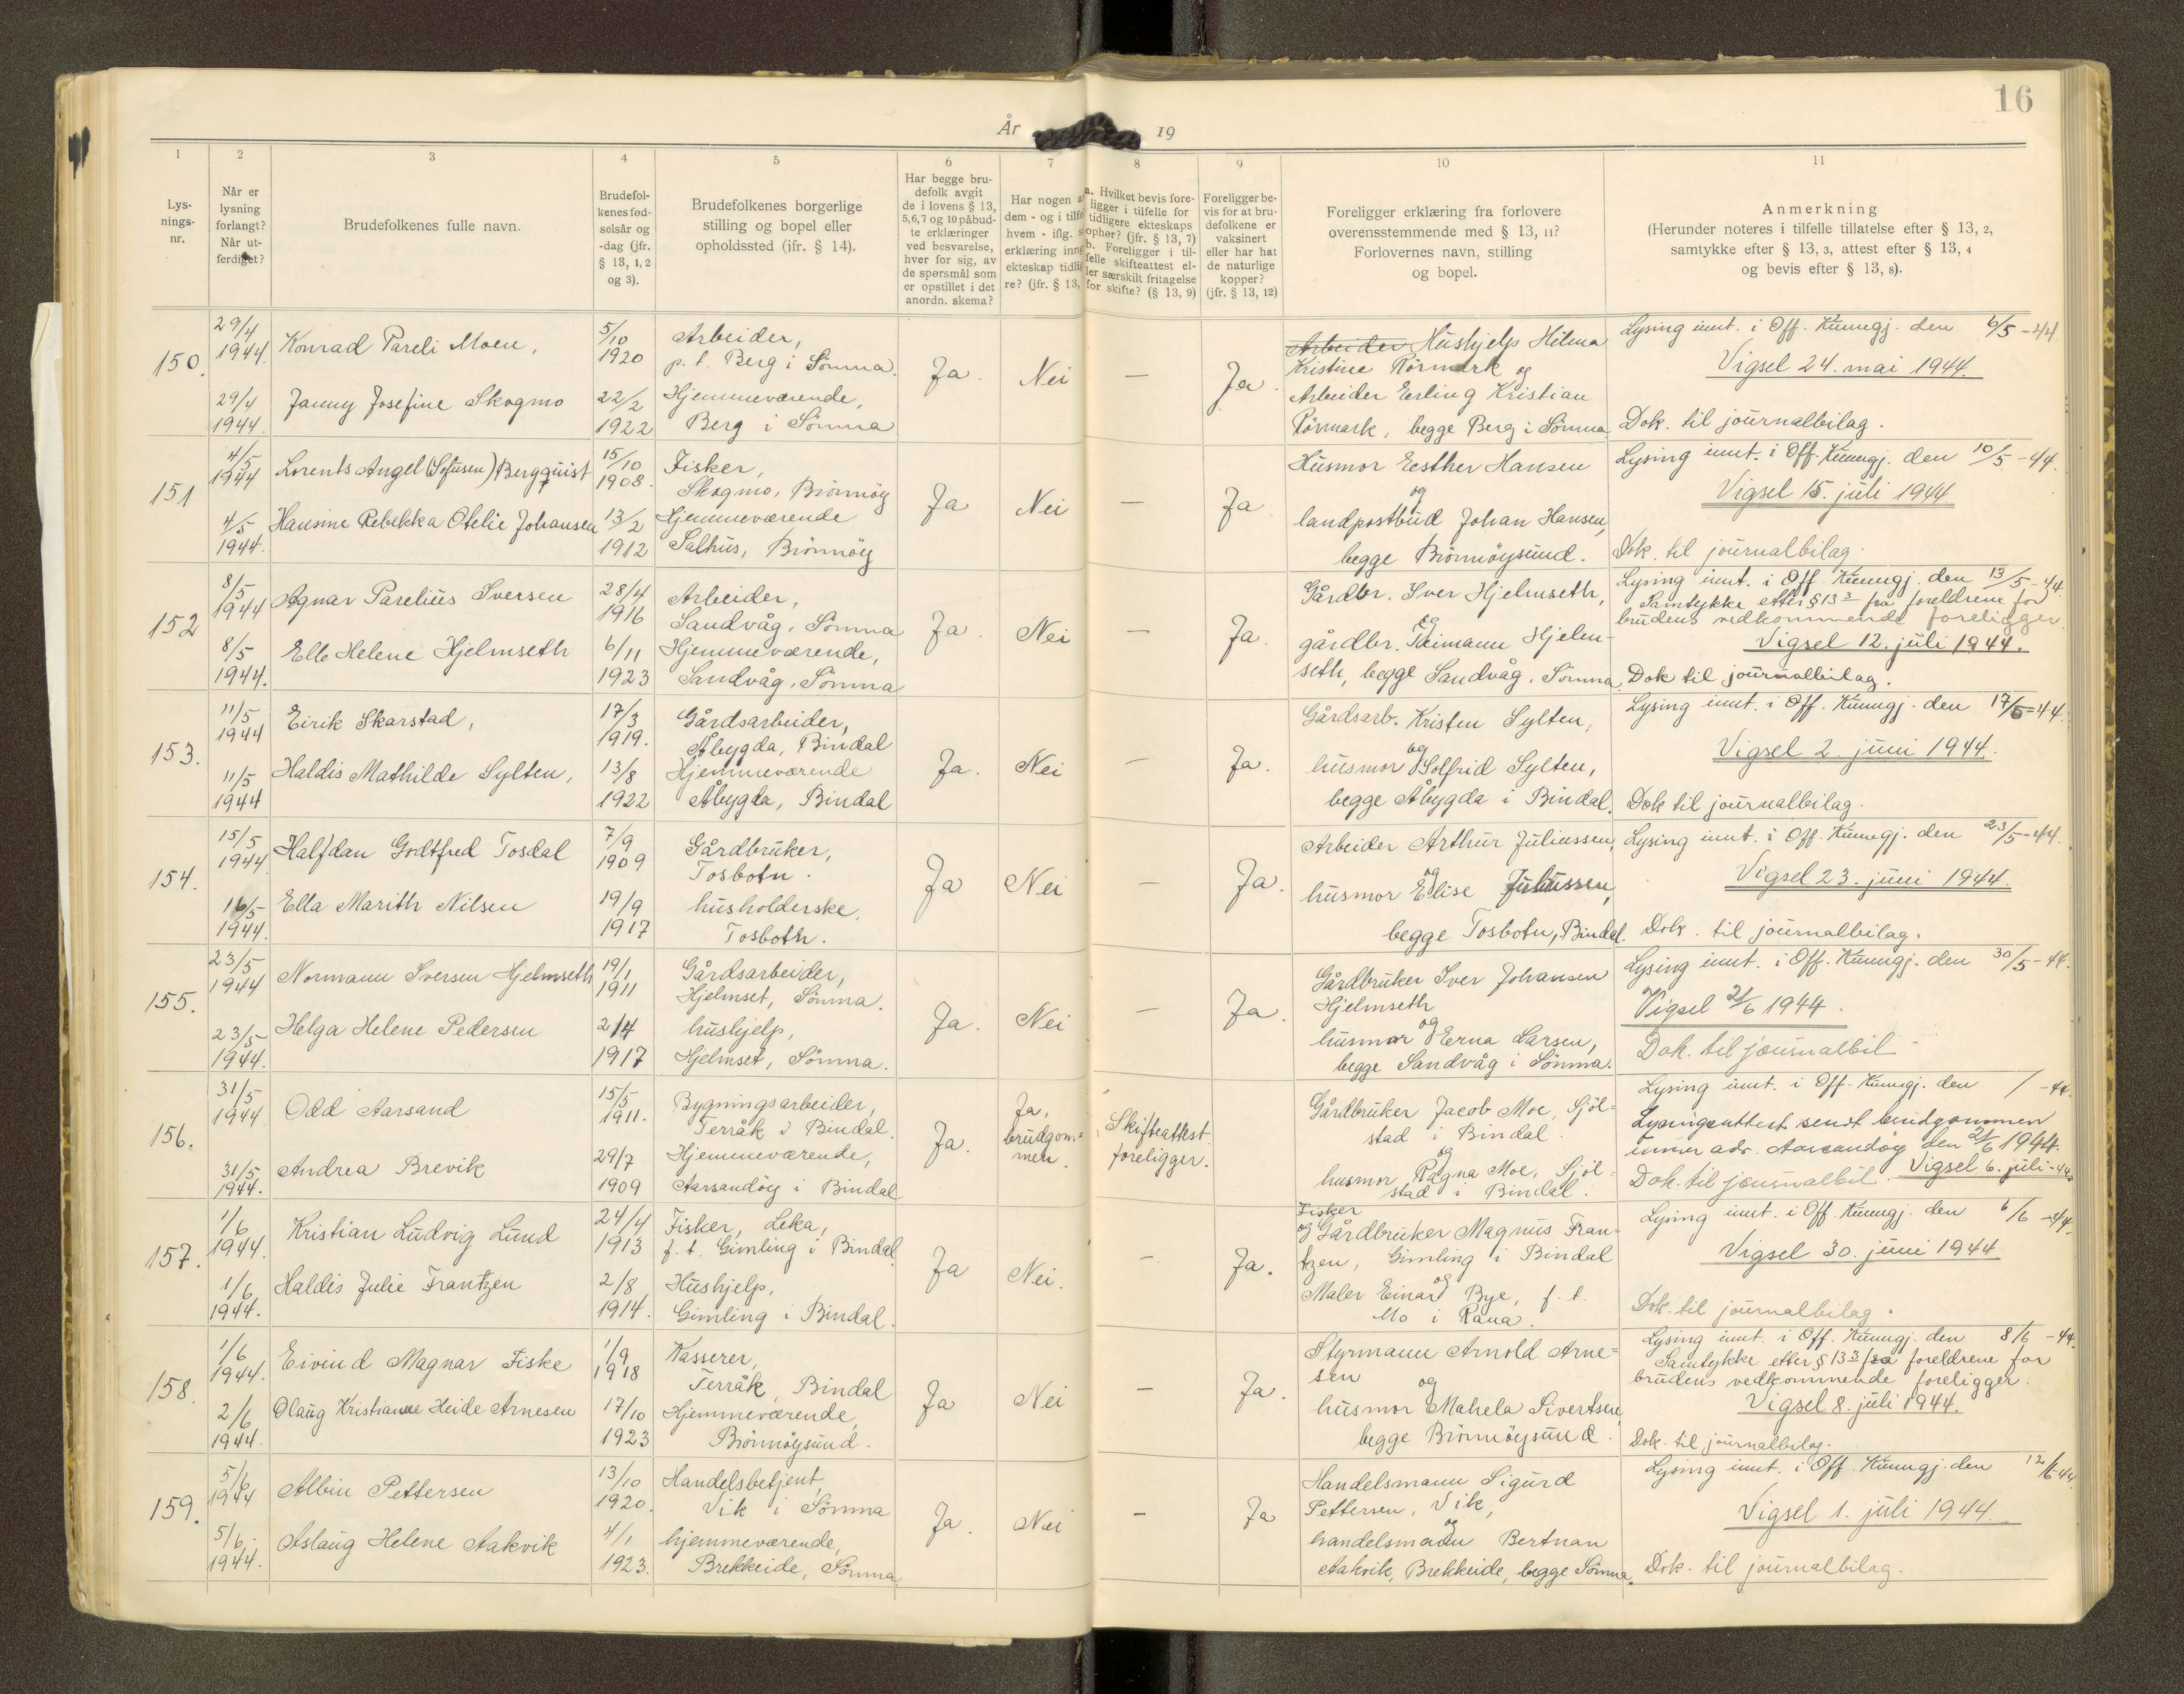 16
År 19
1
2
3
4
5
6
7
8
9
10
11
Lys-
nings-
nr.
Når er
lysning
forlangt?
Når ut-
ferdiget?
Brudefolkenes fulle navn.
Brudefol-
kenes fød-
selsår og
-dag (jfr.
§ 13, 1, 2
og 3).
Brudefolkenes borgerlige
stilling og bopel eller
opholdssted (jfr. § 14).
Har begge bru-
defolk avgit
de i lovens § 13,
5,6,7 og 10 påbud-
te erklæringer
ved besvarelse,
hver for sig, av
de spørsmål som
er opstillet i det
anordn. skema?
Har nogen a
dem - og i tilfe
hvem - iflg. s
erklæring inng
ekteskap tidli
re? (jfr. § 13,
a. Hvilket bevis fore-
ligger i tilfelle for
tidligere ekteskaps
ophør? (jfr. § 13, 7)
b. Foreligger i til-
felle skifteattest el-
ler særskilt fritagelse
for skifte? (§ 13, 9)
Foreligger be-
vis for at bru-
defolkene er
vaksinert
eller har hat
de naturlige
kopper?
(jfr. § 13, 12)
Foreligger erklæring fra forlovere
overensstemmende med § 13, 11?
Forlovernes navn, stilling
og bopel.
Anmerkning
(Herunder noteres i tilfelle tillatelse efter § 13, 2,
samtykke efter § 13, 3, attest efter § 13, 4
og bevis efter § 13, 8).
150.
29/4
1944.
Konrad Pareli Moen,
5/10
1920
Arbeider,
p. t. Berg i Sömna.
29/4
1944.
Janny Josefine Skogmo
22/2
1922
Hjemmeværende,
Berg i Sömna
Ja.
Nei
—
Ja.
Arbeider Hushjelp Hilma
Kristine Rörmark og
Arbeider Erling Kristian
Rörmark, begge Berg i Sömna.
Lysing innt. i Off. Kunngj. den 6/5-44.
Vigsel 24. mai 1944.
Dok. til journalbilag.
151
4/5
1944
Lorents Angel (Sofusen) Bergquist
15/10
1908.
Fisker,
Skogmo, Brönnöy
4/5
1944.
Hansine Rebekka Otelie Johansen
13/2
1912
Hjemmeværende
Salhus, Brönnöy
Ja
Nei
—
Ja
Husmor Eesther Hansen
og
landpostbud Johan Hansen,
begge Brönnöysund.
Lysing innt. i Off. Kunngj. den 10/5-44.
Vigsel 15. juli 1944
Dok. til journalbilag.
152
8/5
1944
Agnar Parelius Iversen
28/4
1916
Arbeider,
Sandvåg, Sömna
8/5
1944.
Elle Helene Hjelmseth
6/11
1923
Hjemmeværende,
Sandvåg, Sömna
Ja.
Nei
—
Ja.
Gårdbr. Iver Hjelmseth,
og
gårdbr. Reimann Hjelm-
seth, begge Sandvåg, Sömna.
Lysing innt. i Off. Kunngj. den 13/5-44.
Samtykke etter § 13 3 fra foreldrene for
brudens vedkommende foreligger.
Vigsel 12. juli 1944.
Dok til journalbilag.
153.
11/5
1944
Eirik Skarstad,
17/3
1919.
Gårdsarbeider,
Åbygda, Bindal
11/5
1944
Haldis Mathilde Sylten,
13/8
1922
Hjemmeværende
Åbygda, Bindal
Ja.
Nei
—
Ja.
Gårdsarb. Kristen Sylten,
og
husmor Solfrid Sylten,
begge Åbygda i Bindal.
Lysing innt. i Off. Kunngj. den 17/5-44.
Vigsel 2. juni 1944.
Dok til journalbilag.
154.
15/5
1944
Halfdan Godtfred Tosdal
7/9
1909
Gårdbruker,
Tosbotn.
16/5
1944.
Ella Marith Nilsen
19/9
1917
husholderske,
Tosboth.
Ja
Nei
—
Ja.
Arbeider Arthur Juliussen,
og
husmor Elise Juliussen,
begge Tosbotn, Bindal.
Lysing innt. i Off. Kunngj. den 23/5-44.
Vigsel 23. juni 1944.
Dok. til journalbilag.
155.
23/5
1944
Normann Iversen Hjelmseth
19/1
1911
Gårdsarbeider,
Hjelmset, Sömna.
23/5
1944.
Helga Helene Pedersen
2/4
1917
hushjelp,
Hjelmset, Sömna.
Ja.
Nei
—
Ja.
Gårdbruker Iver Johansen
Hjelmseth
og
husmor Erna Larsen,
begge Sandvåg i Sömna.
Lysing innt. i Off. Kunngj. den 30/5-44.
Vigsel 21/6 1944.
Dok. til journalbil
156.
31/5
1944
Odd Aarsand
15/5
1911.
Bygningsarbeider,
Terråk i Bindal.
31/5
1944.
Andrea Brevik
29/7
1909
Hjemmeværende,
Aarsandöy i Bindal
Ja.
Ja,
brudgom-
men.
Skifteattest
foreligger.
Gårdbruker Jacob Moe, Sjöl-
stad i Bindal.
og
husmor Ragna Moe, Sjöl-
stad i Bindal.
Lysing innt. i Off. Kunngj. den / -44.
Lysingsattest sendt brudgommen
under adr. Aarsandöy den 21/6 1944.
Dok. til journalbil. Vigsel 6. juli-44.
157.
1/6
1944.
Kristian Ludvig Lund
24/4
1913
Fisker, Leka,
f. t. Gimling i Bindal.
1/6
1944.
Haldis Julie Frantzen
2/8
1914.
Hushjelp,
Gimling i Bindal.
Ja
Nei.
—
Ja.
Fisker
og Gårdbruker Magnus Fran-
tzen, Gimling i Bindal
og
Maler Einar Bye, f. t.
Mo i Rana.
Lysing innt. i Off. Kunngj. den 6/6 -44.
Vigsel 30. juni 1944
Dok. til journalbilag.
158.
1/6
1944.
Eivind Magnar Fiske
1/9
1918
Kasserer,
Terråk, Bindal
2/6
1944.
Olaug Kristianne Heide Arnesen
17/10
1923
Hjemmeværende,
Brönnöysund.
Ja
Nei
—
Ja.
Styrmann Arnold Arne-
sen
og
husmor Mahela Sivertsen,
begge Brönnöysund.
Lysing innt. i Off. Kunngj. den 8/6 -44.
Samtykke etter § 13 3 fra foreldrene for
brudens vedkommende foreligger.
Vigsel 8. juli 1944.
Dok. til journalbilag.
159.
5/6
1944
Albin Pettersen
13/10
1920.
Handelsbetjent,
Vik i Sömna
5/6
1944.
Aslaug Helene Aakvik
4/1
1923.
hjemmeværende,
Brekkeide, Sömna.
Ja.
Nei
—
Ja
Handelsmann Sigurd
Pettersen, Vik,
og
handelsmann Bertnan
Aakvik, Brekkeide, begge Sömna.
Lysing innt. i Off. Kunngj. den 12/6-44.
Vigsel 1. juli 1944.
Dok. til journalbilag.